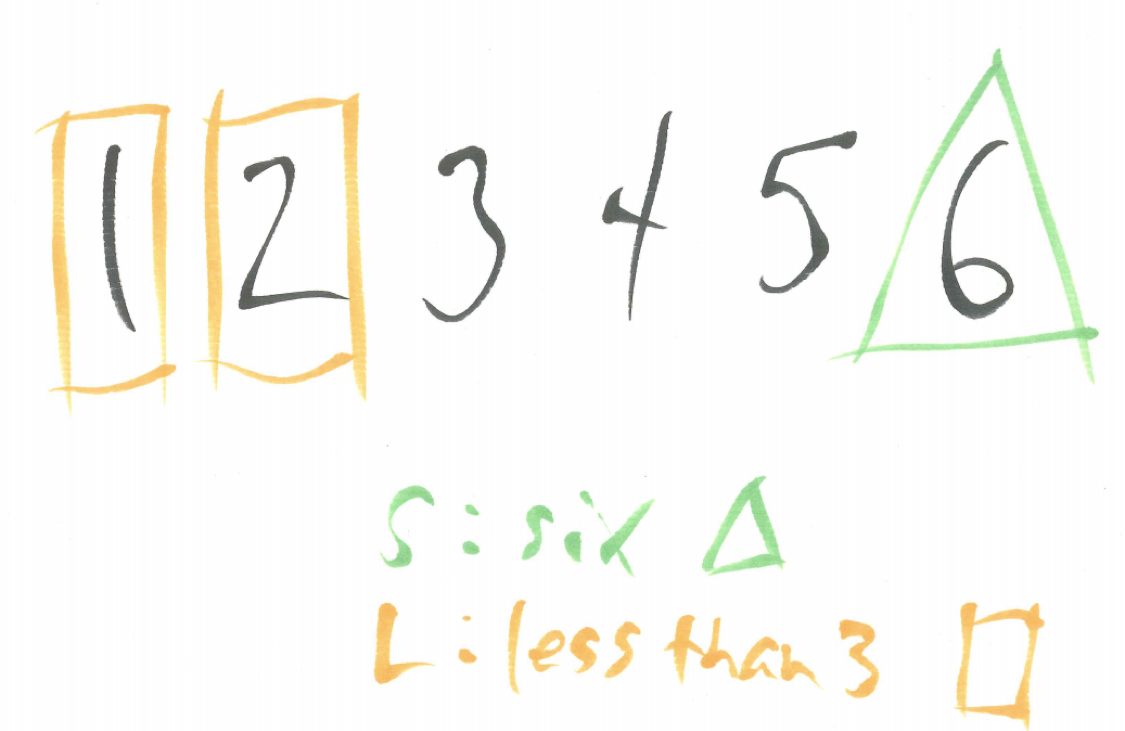 1 2 3 4 5 6
S: six
L: less than 3